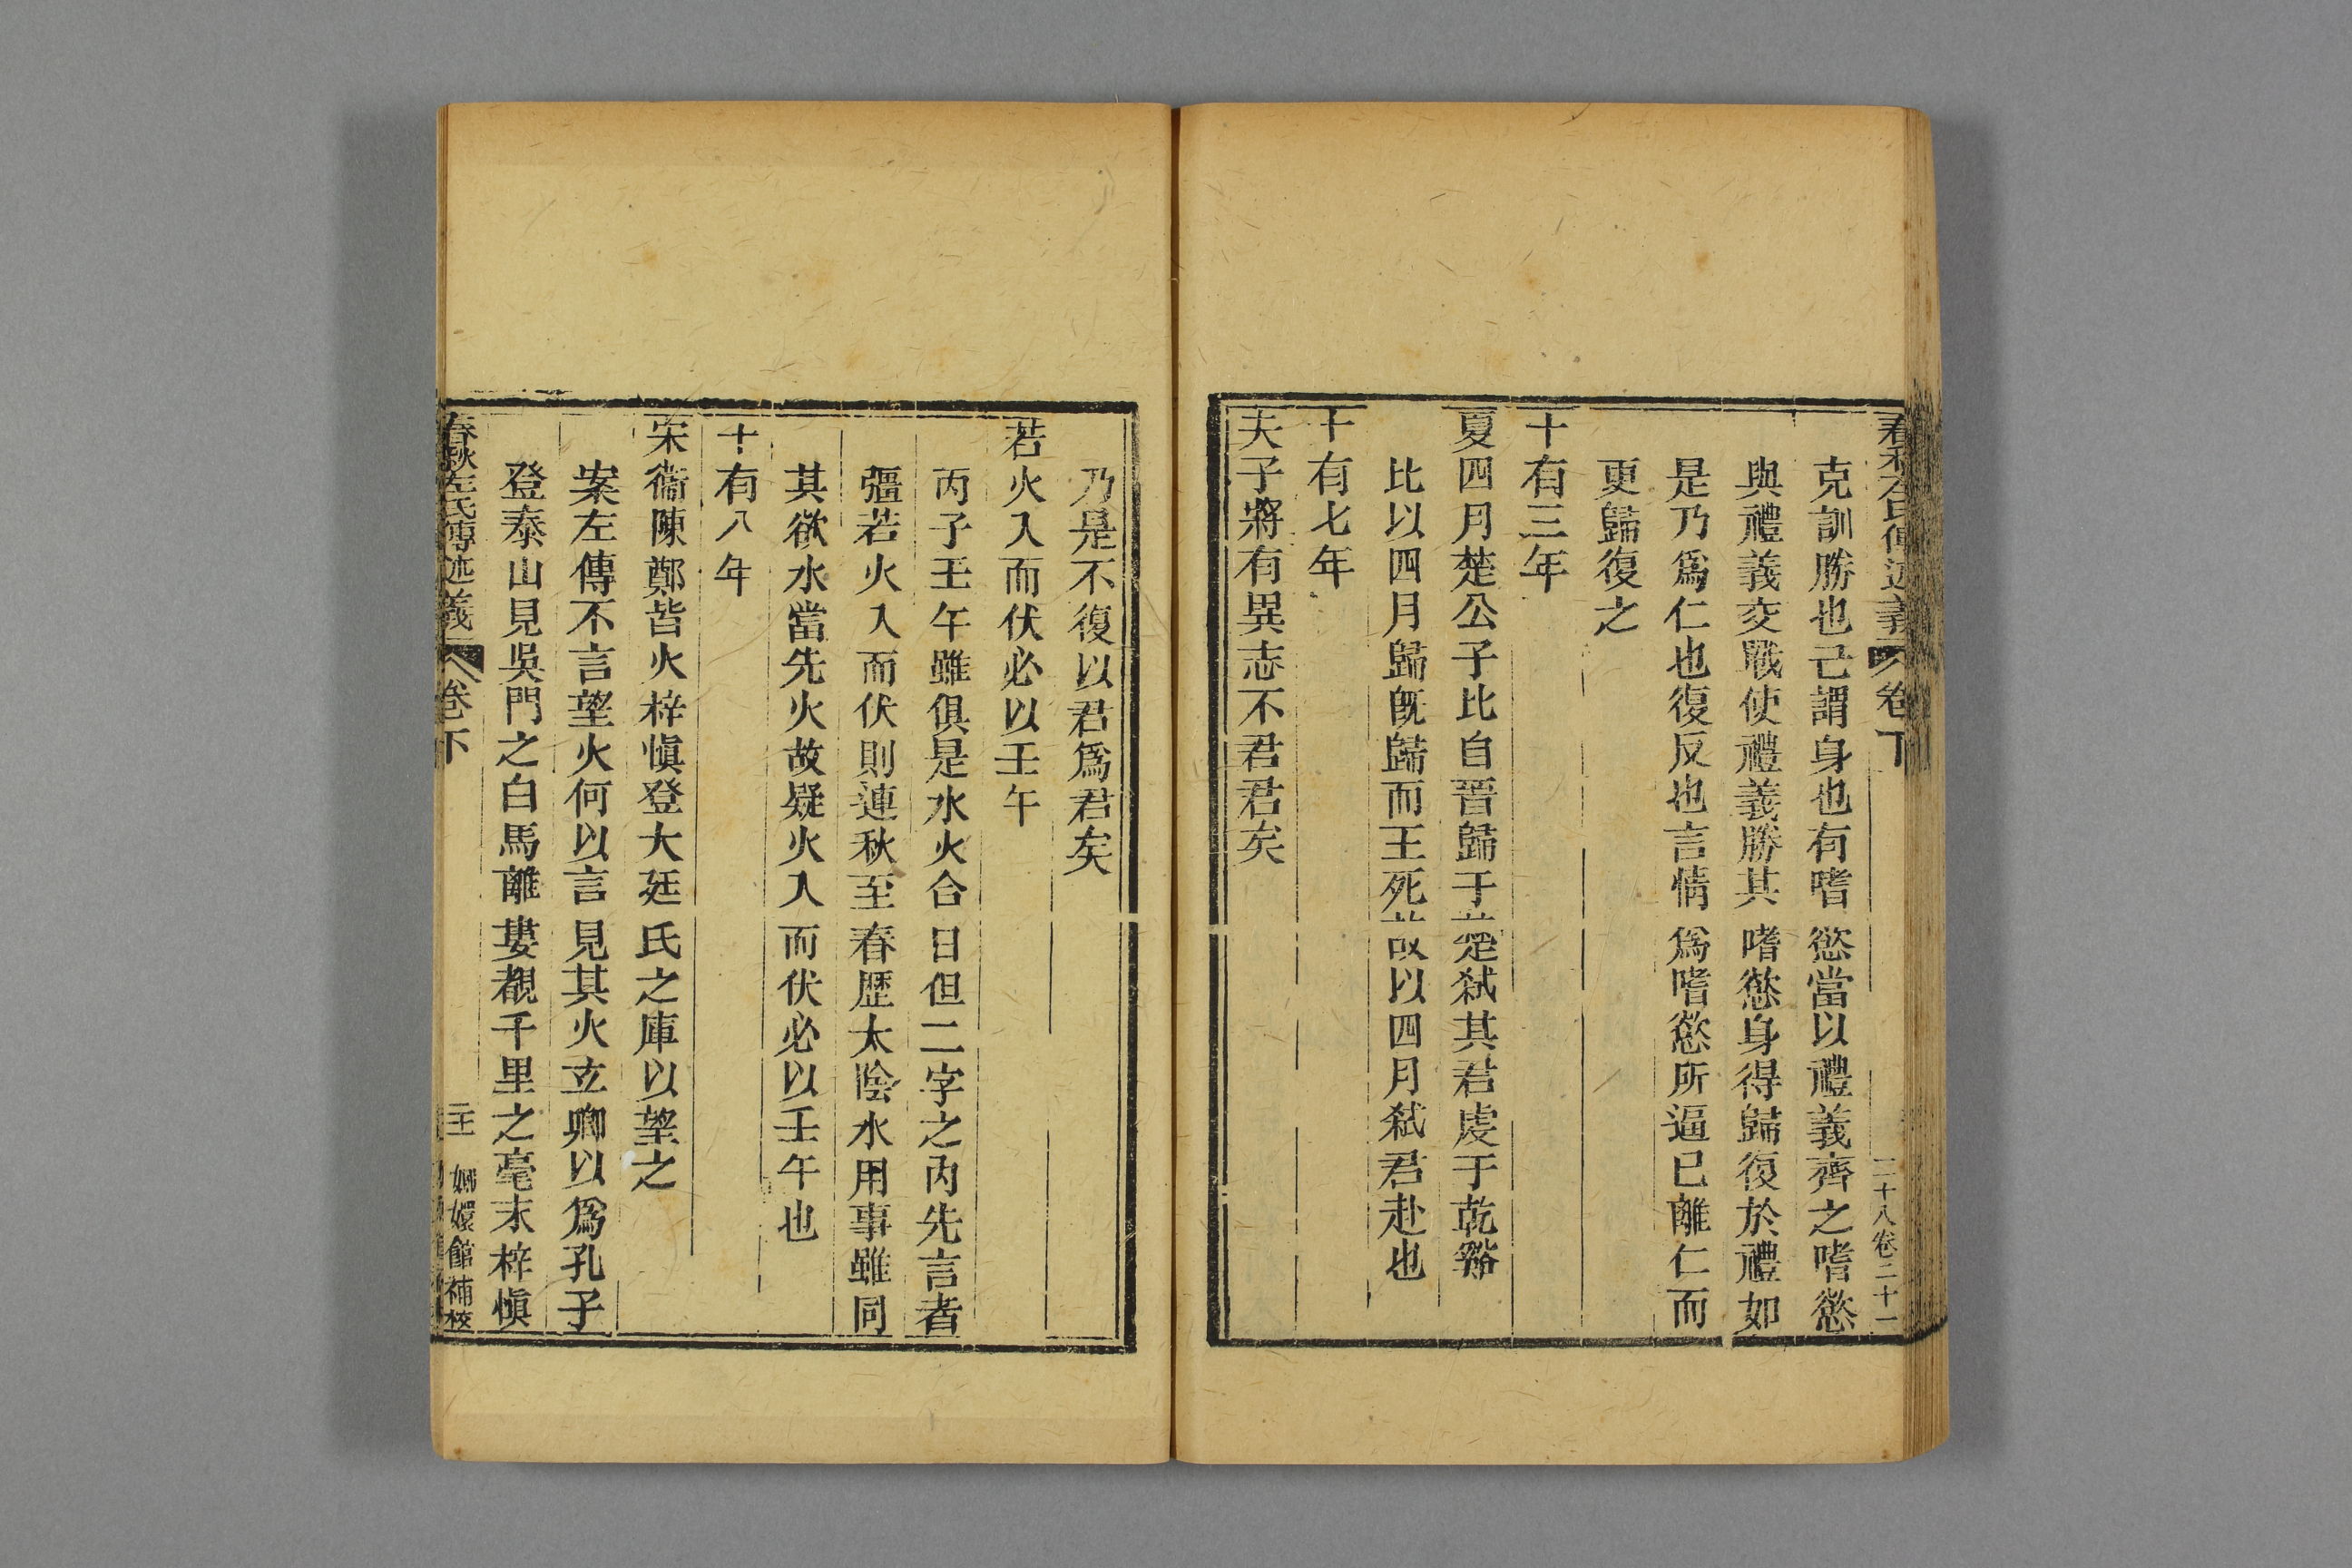 春秋左氏傳述義 卷下 二十八卷二十一
克訓勝也己謂身也有嗜慾當以禮義齊之嗜慾
與禮義交戰使禮義勝其嗜慾身得歸復於禮如
是乃爲仁也復反也言情爲嗜慾所逼已離仁而
更歸復之
十有三年
夏四月楚公子比自晋歸于楚弑其君虔于乾谿
比以四月歸既歸而王死故以四月弑君赴也
十有七年
夫子將有異志不君君矣
乃是不復以君爲君矣
若火入而伏必以壬午
丙子壬午雖俱是水火合日但二字之內先言者
彊若火入而伏則連秋至春歷太陰水用事雖同
其欲水當先火故疑火入而伏必以壬午也
十有八年
宋衞陳鄭皆火梓愼登大廷氏之庫以望之
案左傳不言望火何以言見其火玄卿以爲孔子
登泰山見吳門之白馬離婁覩千里之毫末梓愼
春秋左氏傳述義 卷下 嫏嬛館補校